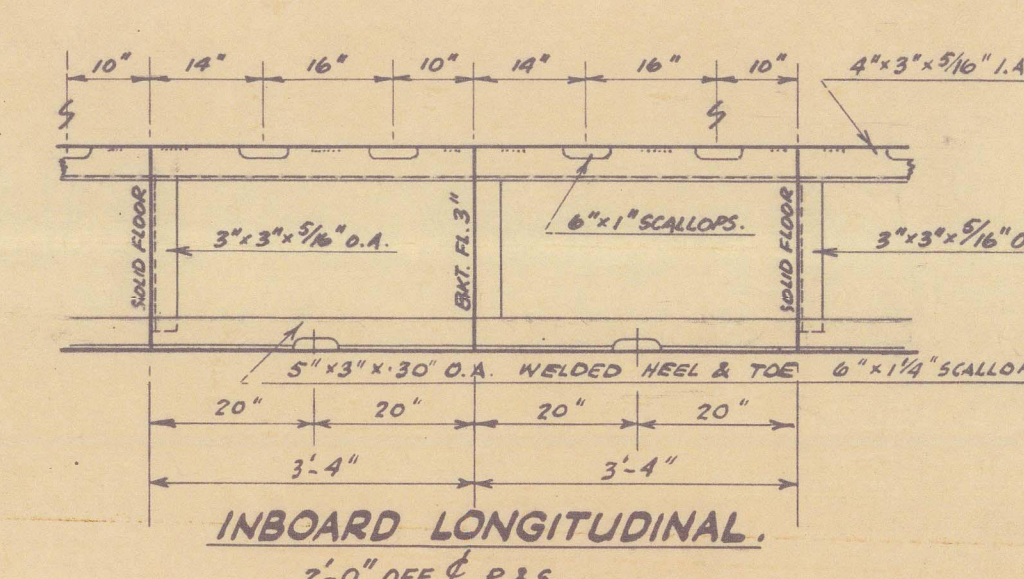 10" 14" 16" 10" 14" 16" 10"
4"×3"×5/16" I.A
SOLID FLOOR
3"×3"×5/16" O.A.
BKT. FL. 3"
6"×1" SCALLOPS.
SOLID FLOOR
3"×3"×5/16" O
5"×3"×·30" O.A. WELDED HEEL & TOE
6"×1¼" SCALLO
20" 20" 20" 20"
3'-4" 3'-4"
INBOARD LONGITUDINAL.
2'-0" OFF ℄ P & S